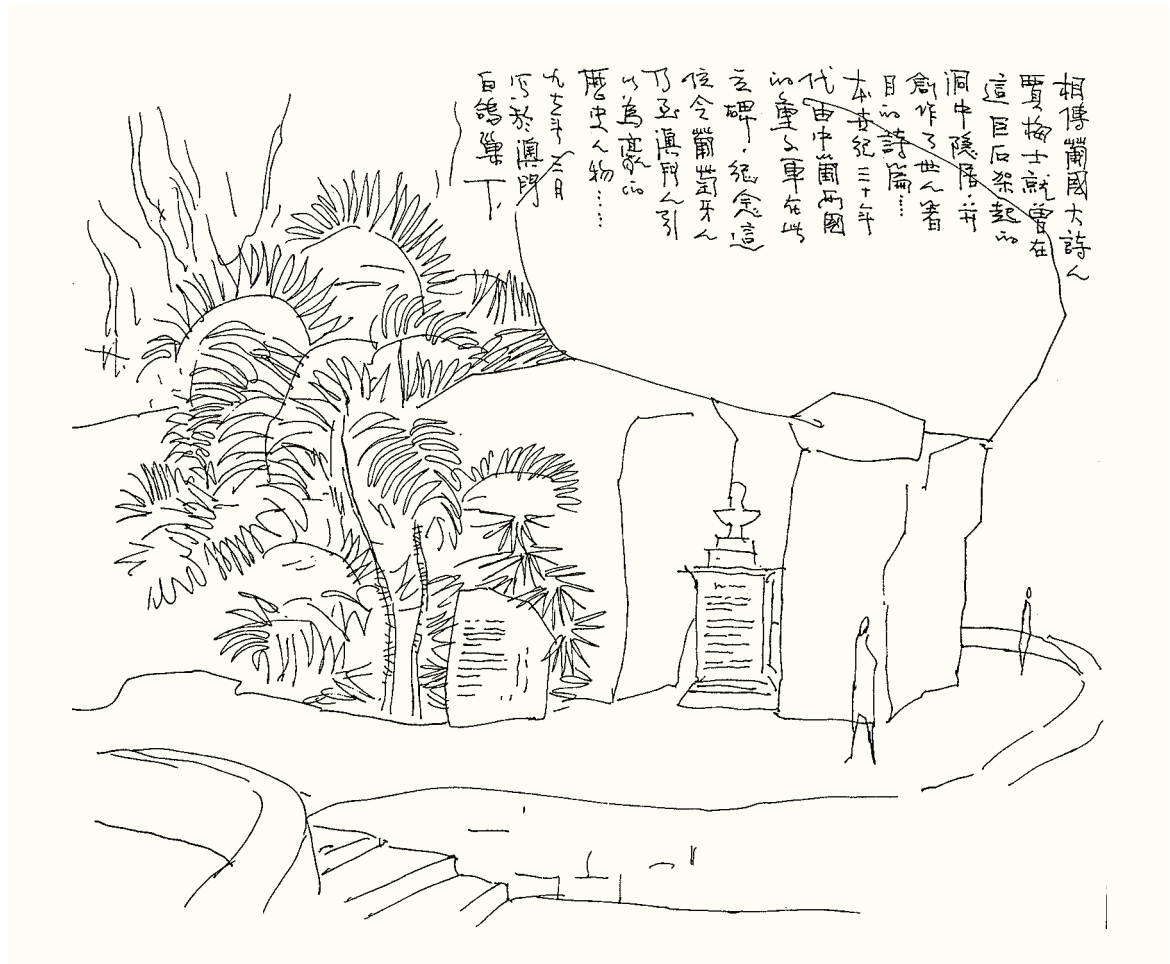 相傳葡國大詩人
賈梅士就曾在
這巨石架起的
洞中隱居，并
創作了世人著
目的詩篇…
本世紀三十年
代由中葡兩國
的童子軍在此
立碑，紀念這
位令葡萄牙人
乃至澳門人引
以為豪的
歷史人物……
九七年三月
写於澳門
白鴿巢下.